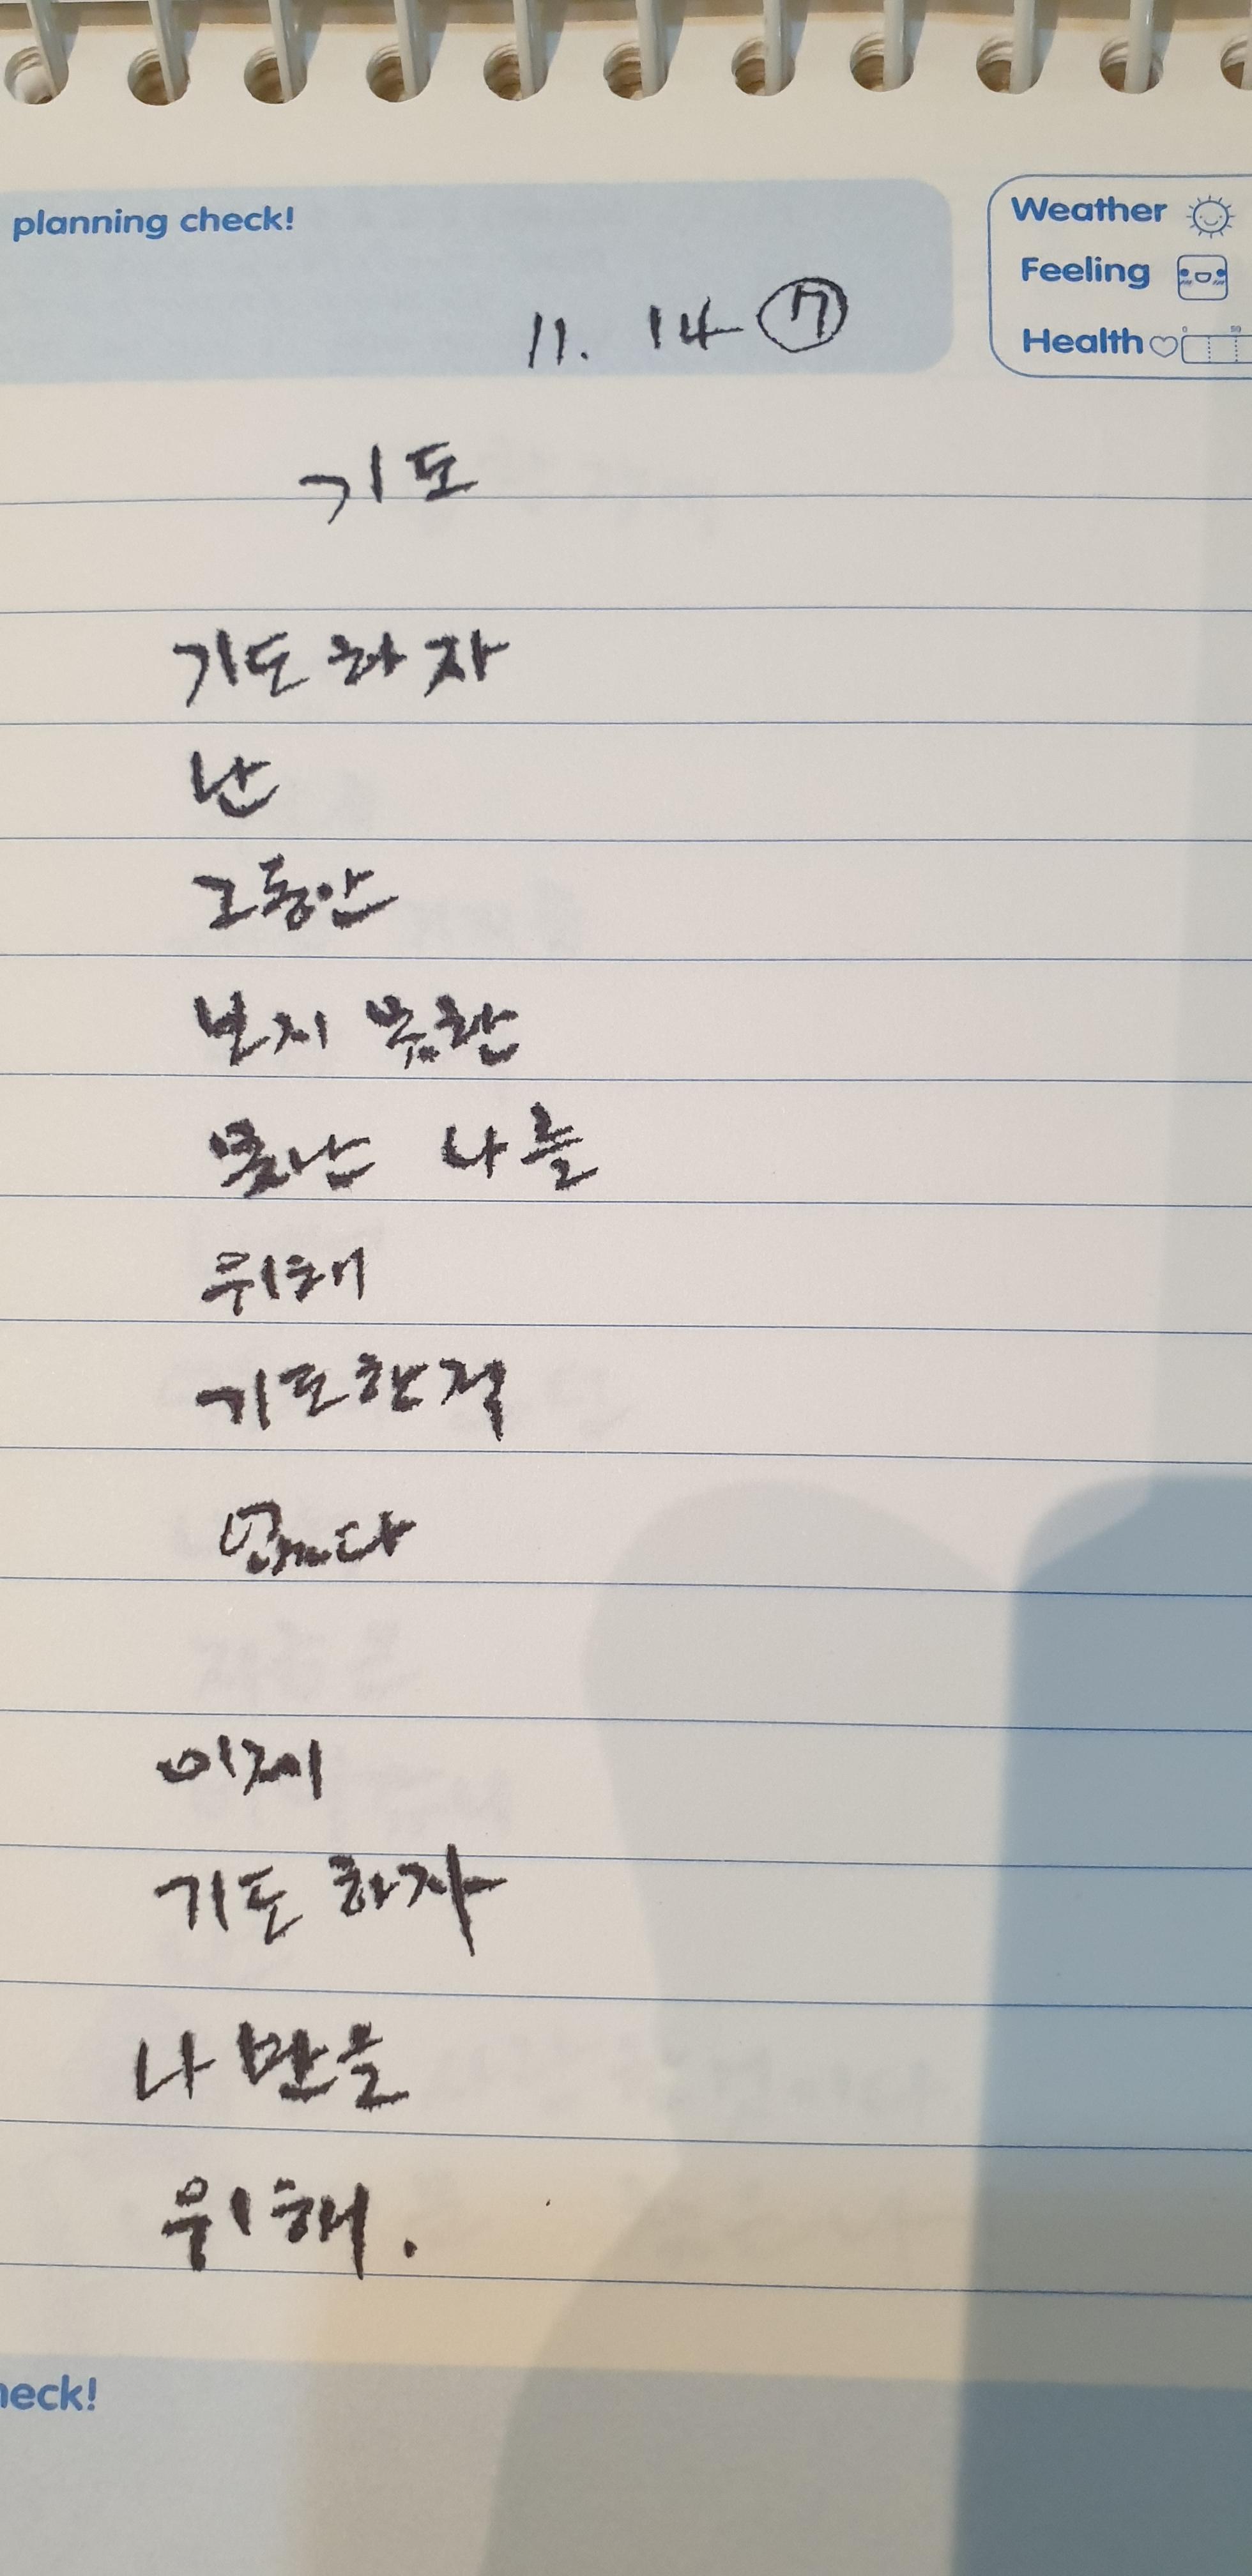 planning check!
Weather
Feeling
Health
11. 14 ⑦
기도
기도하자
난
그동안
보지 못한
못난 나를
위해
기도한적
없다
이제
기도 하자
나만을
위해.
heck!